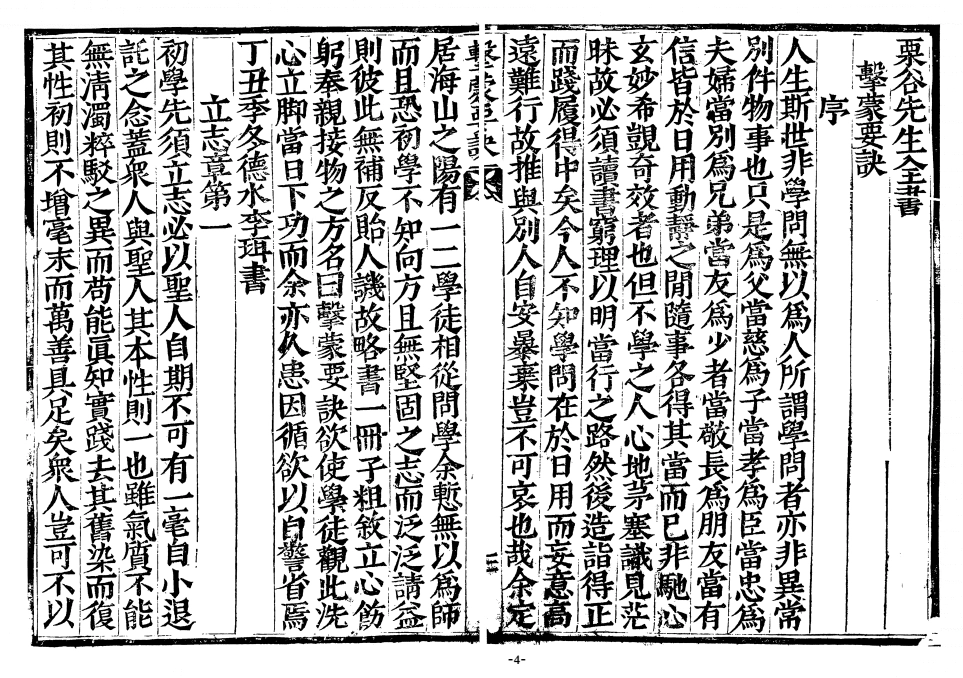 栗谷先生全書
擊蒙要訣
序
人生斯世非學問無以爲人所謂學問者亦非異常
別件物事也只是爲父當慈爲子當孝爲臣當忠爲
夫婦當別爲兄弟當友爲少者當敬長爲朋友當有
信皆於日用動靜之間隨事各得其當而已非馳心
玄妙希覬奇效者也但不學之人心地茅塞識見茫
昧故必須讀書窮理以明當行之路然後造詣得正
而踐履得中矣今人不知學問在於日用而妄意高
遠難行故推與別人自安暴棄豈不可哀也哉余定
擊蒙要訣
居海山之陽有一二學徒相從問學余慙無以爲師
而且恐初學不知向方且無堅固之志而泛泛請益
則彼此無補反貽人譏故略書一冊子粗敘立心飭
躬奉親接物之方名曰擊蒙要訣欲使學徒觀此洗
心立脚當日下功而余亦久患因循欲以自警省焉
丁丑季冬德水李珥書
立志章第一
初學先須立志必以聖人自期不可有一毫自小退
託之念蓋衆人與聖人其本性則一也雖氣質不能
無淸濁粹駁之異而苟能眞知實踐去其舊染而復
其性初則不增毫末而萬善具足矣衆人豈可不以
-4-